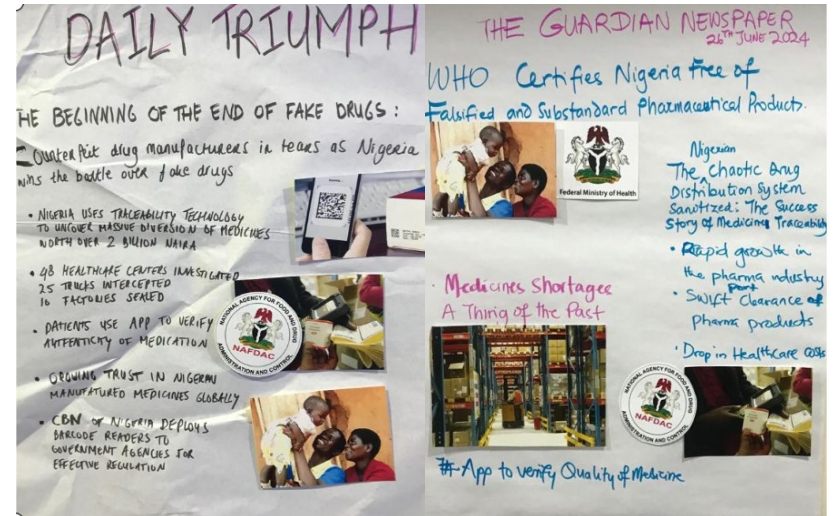 DAILY TRIUMPH
HE BEGINNING OF THE END OF FAKE DRUGS:
Counterfeit drug manufacturers in tears as Nigeria
wins the battle over fake drugs
• NIGERIA USES TRACEABILITY TECHNOLOGY
TO UNCOVER MASSIVE DIVERSION OF MEDICINES
WORTH OVER 2 BILLION NAIRA
• 48 HEALTHCARE CENTERS INVESTIGATED
25 TRUCKS INTERCEPTED
10 FACTORIES SEALED
• PATIENTS USE APP TO VERIFY
AUTHENTICITY OF MEDICATION
NATIONAL AGENCY FOR FOOD AND DRUG
NAFDAC
ADMINISTRATION AND CONTROL
• GROWING TRUST IN NIGERIAN
MANUFATURED MEDICINES GLOBALLY
• CBN OF NIGERIA DEPLOYS
BARCODE READERS TO
GOVERNMENT AGENCIES FOR
EFFECTIVE REGULATION
THE GUARDIAN NEWSPAPER
26TH JUNE 2024
WHO Certifies Nigeria free of
Falsified and Substandard Pharmaceutical Products.
Federal Ministry of Health
Nigerian
The Chaotic Drug
Distribution System
Sanitized: The Success
Story of Medicines Traceability
• Rapid growth in
the pharma industry
• Swift Port Clearance of
Pharma products
• Drop in Healthcare costs
• Medicines Shortages
A Thing of the Past
NATIONAL AGENCY FOR FOOD AND DRUG
NAFDAC
ADMINISTRATION AND CONTROL
# App to verify Quality of Medicine